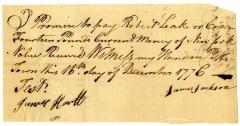 I Promise to pay Robert Leake or Order
Fourteen Pounds Current Money of New York
Value Received Witness my Hand
Town this 18th day of December 1776
Test
James Jackson